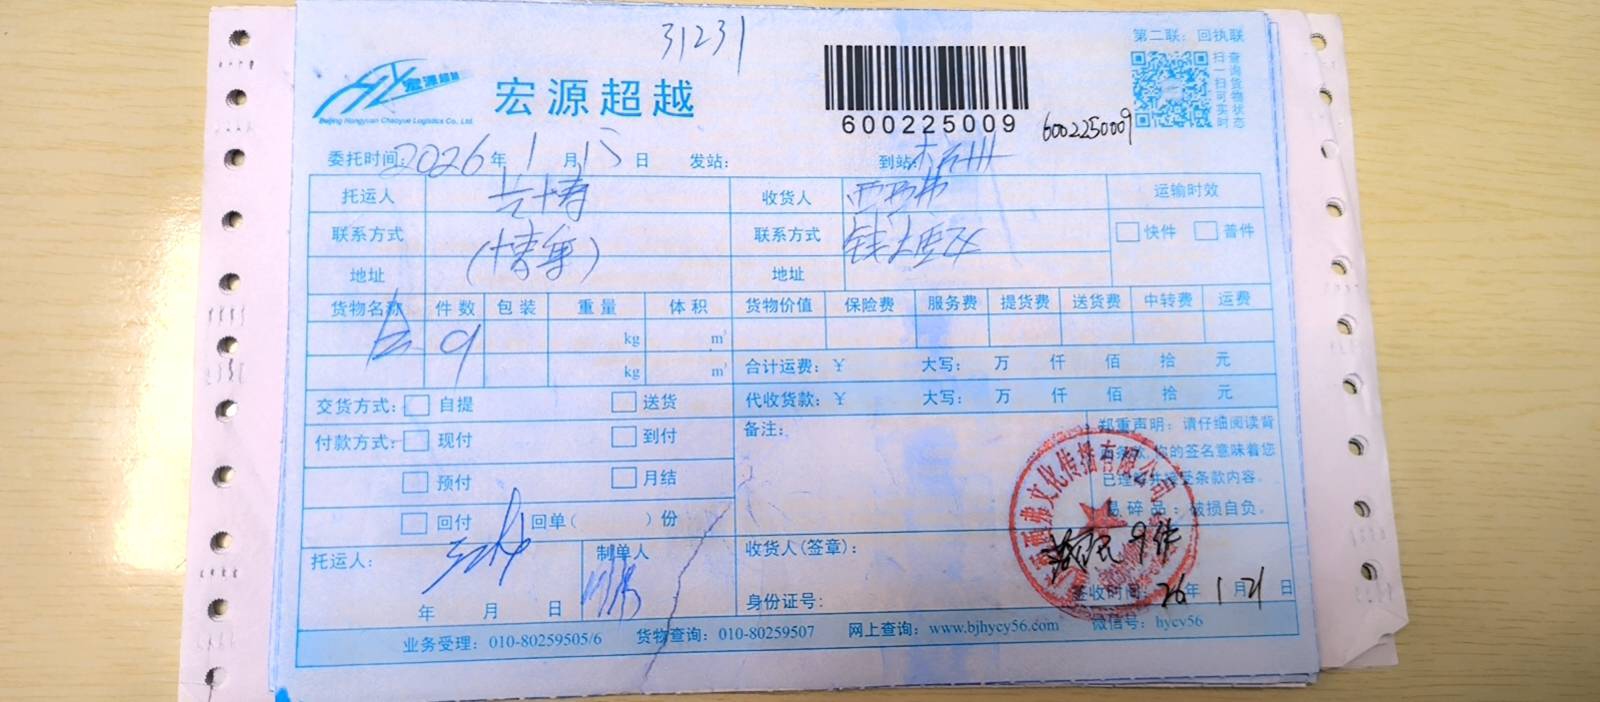 31231
第二联：回执联
宏源超越
Beijing Hongyuan Chaoyue Logistics Co., Ltd.
宏源超越
600225009
6002250009
扫一扫可实时
查询货物状态
委托时间：2026年1月15日 发站： 到站：杭州
托运人 收货人 西玛弗 运输时效
联系方式 (博集) 联系方式 快件 普件
地址 地址
货物名称 件数 包装 重量 体积 货物价值 保险费 服务费 提货费 送货费 中转费 运费
9 kg m³
kg m³ 合计运费：￥ 大写： 万 仟 佰 拾 元
交货方式： 自提 送货 代收货款：￥ 大写： 万 仟 佰 拾 元
付款方式： 现付 到付 备注：
预付 月结
回付 回单( )份
郑重声明：请仔细阅读背
面条款，您的签名意味着您
已理解并接受条款内容。
易碎品：破损自负。
弗文化传播有限公司
9件
托运人： 制单人 收货人(签章)：
年 月 日 身份证号： 签收时间：26年1月21日
业务受理：010-80259505/6 货物查询：010-80259507 网上查询：www.bjhycy56.com 微信号：hycy56